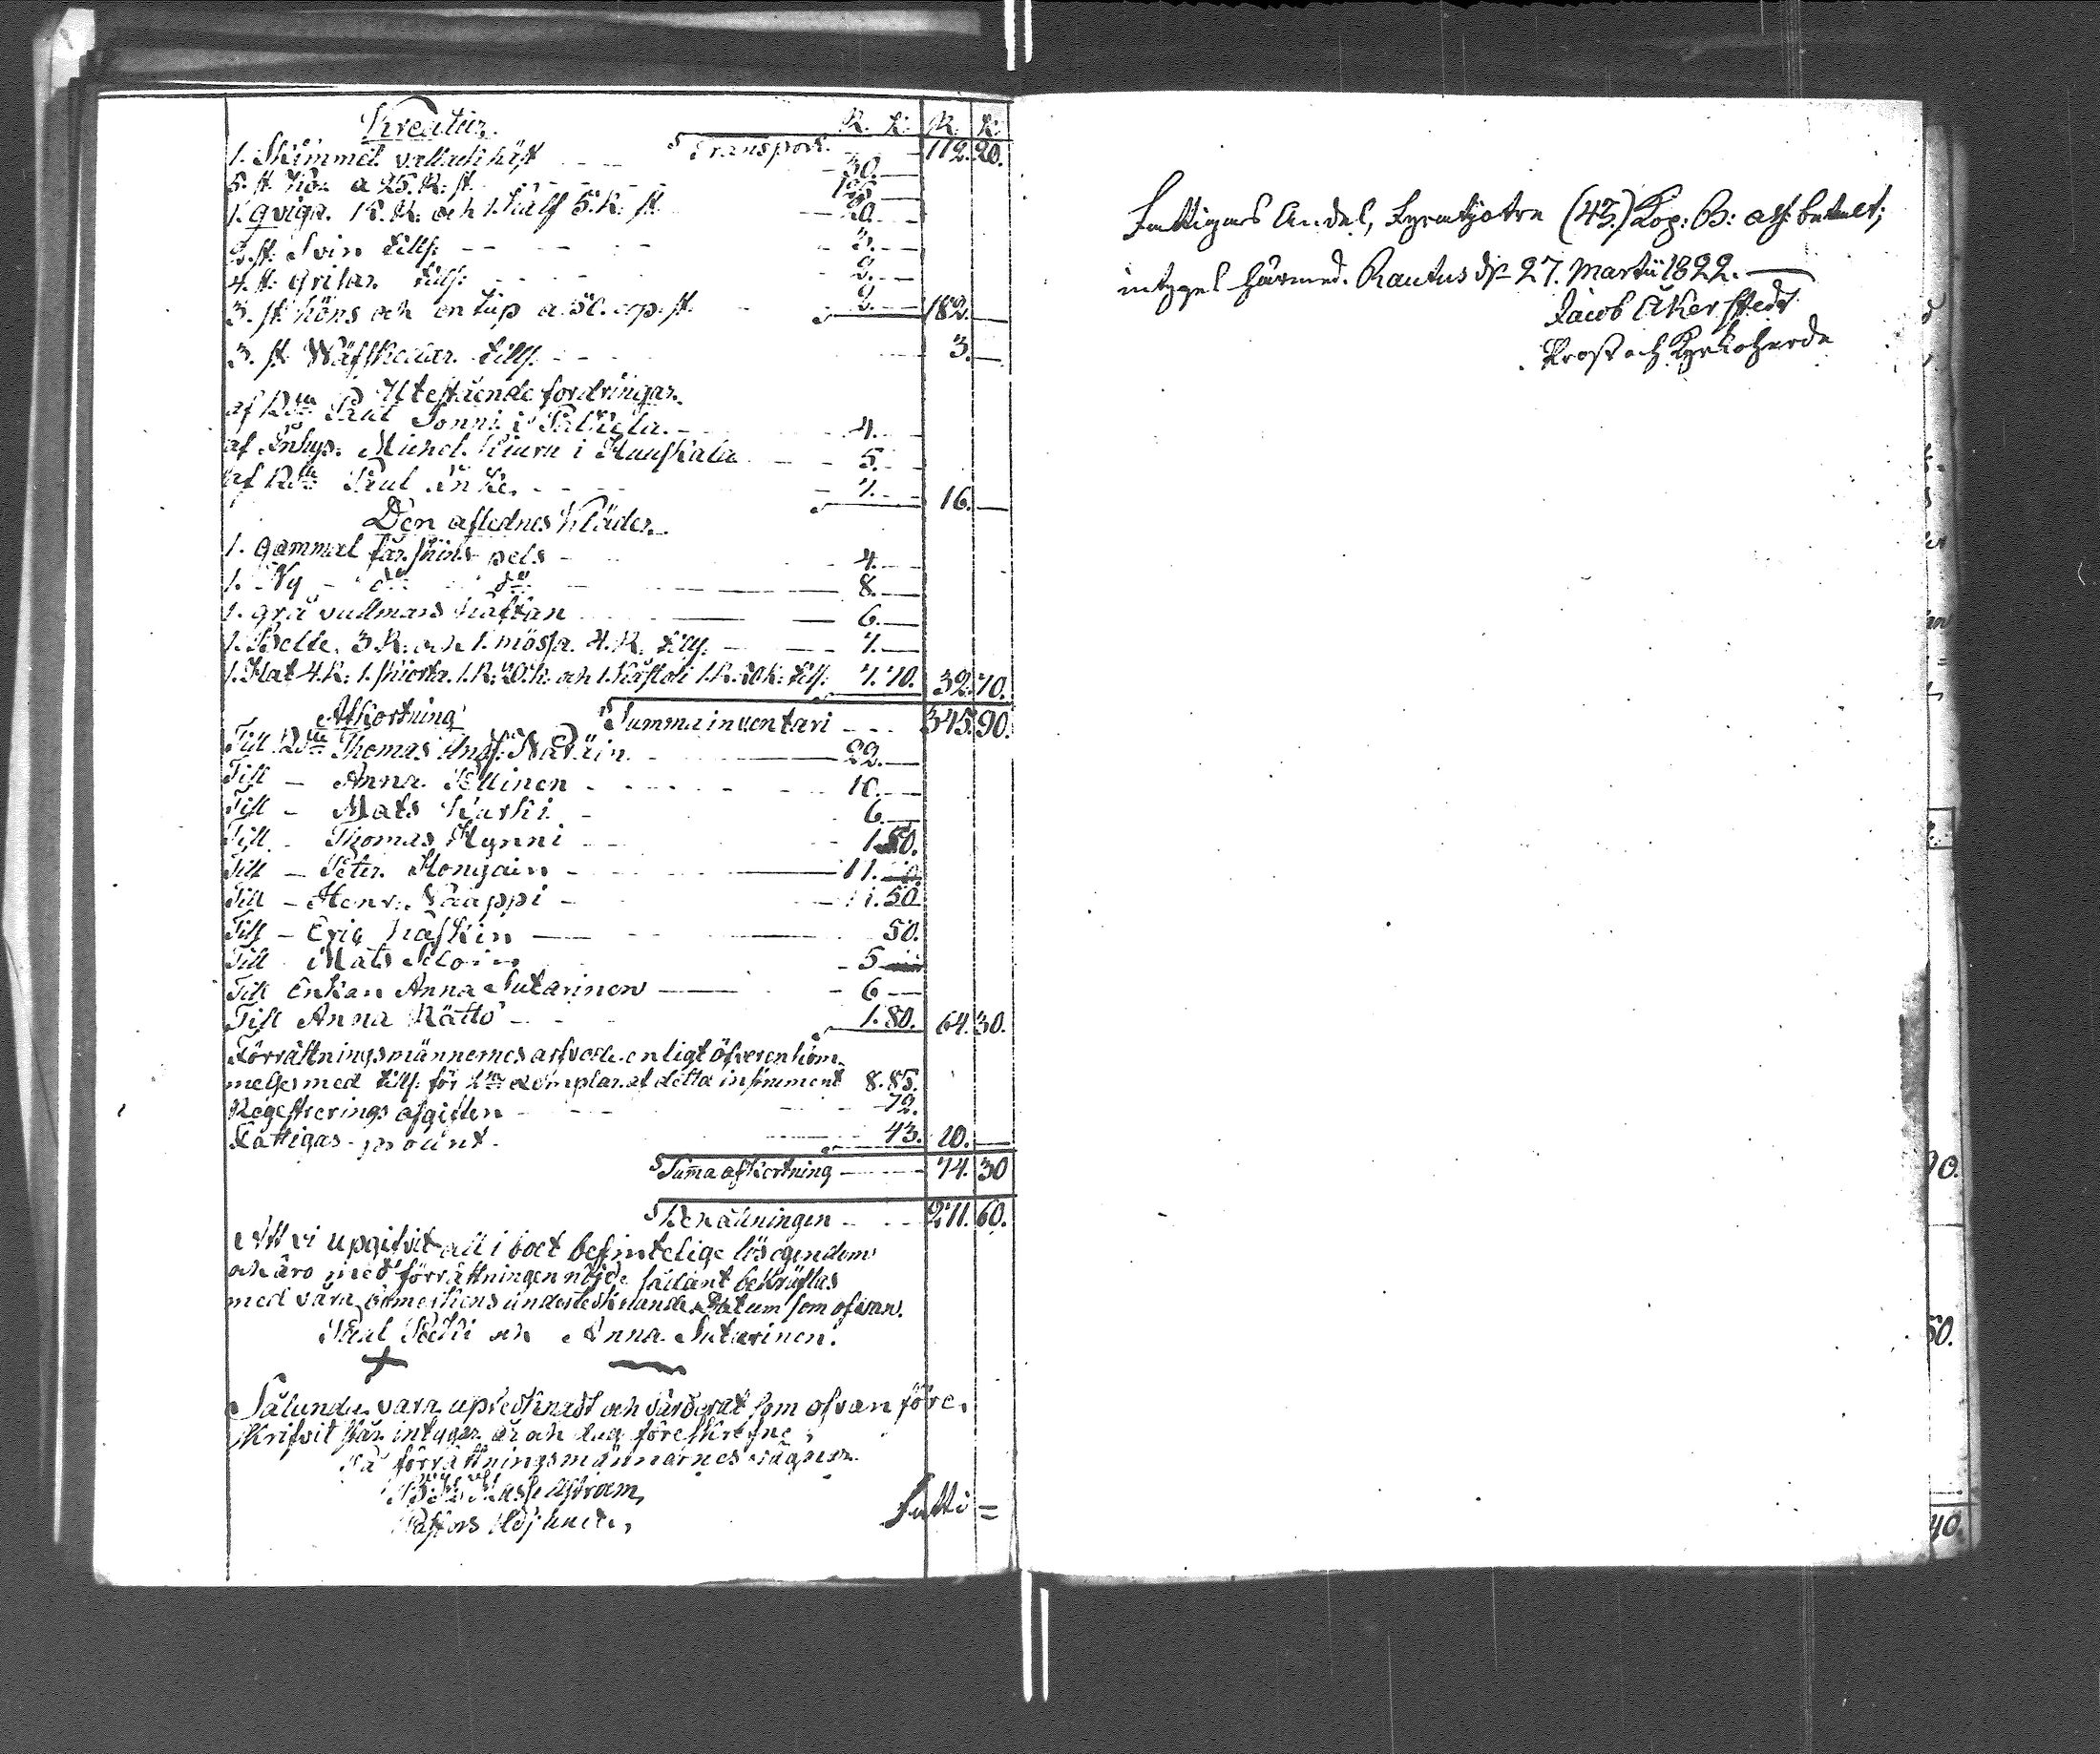 Kreatur.
R. K. R. K.
Transport. 112. 20.
1. Skimmel vallack häst 30.
5. st. Kor a 25. R: st. 125
1. qviga. 15. R: och 1. Kalf 5. R: st. 20.
2. st. Svin tills. 3.
4. st. grisar tills. 2.
3. st. höns och en tup a. 50. cop. st. 2. 182.
3. st. Wäfskedar tills. 3.
Utestående fordringar.
af Bdn Paul Sonni i 4.
af Inhys. Michel Kiuru i Hauskala 5.
af Bdn Paul 7. 16.
Den aflednes Kläder.
1. gammal får skins pels 4.
1. Ny do do 8.
1. grå vallmans kaftan 6.
1. Bälte. 3. R: och 1. mössa. 4. R: tills. 7.
1. Hat 4. R: 1. skiorta. 1. R: 20. K: och tills. 7. 70. 32. 70.
Afkortning Summa inventari 345. 90.
Till Bdn Thomas 22.
Till – Anna Pellinen 10.
Till – Mats Kurki 6.
Till – Thomas Hynni 1. 50.
Till – Peter Hongain 11.
Till – Henr. Naappi 1. 50.
Till – Eric Kaskin 50.
Till Mats 5
Till Enkan Anna Sutarinen 6
Till Anna Rättö 1. 80. 64. 30.
Förrättningsmännernes arfvode enligt öfverenkom-
melse med tills. för exemplar af detta instrument 8. 85.
Regestrerings afgiften 72.
Fattigas procent. 43. 10.
Summa afkortning 74. 30
Behållningen 271. 60.
Att vi upgifvit all i boet befintelige lösegendom
och äro med förrättningen nöjde sådant bekräftas
med våra bomerkens undertecknande Datum som ofvan.
Paul och Anna Sutarinen.
Sålunda vara uptecknadt och värderat som ofvan före-
skrifvit står intygar år och dag föreskrefne
På förrättningsmännernes vägnar
Fatti=
Fattigas Andel, Fyratijotre (43.) Kop: B: Ass: betalt;
intygas härmed. Rautus d. 27. Martii 1822.
Jacob Åkerstedt
Prost och Kyrkoherde